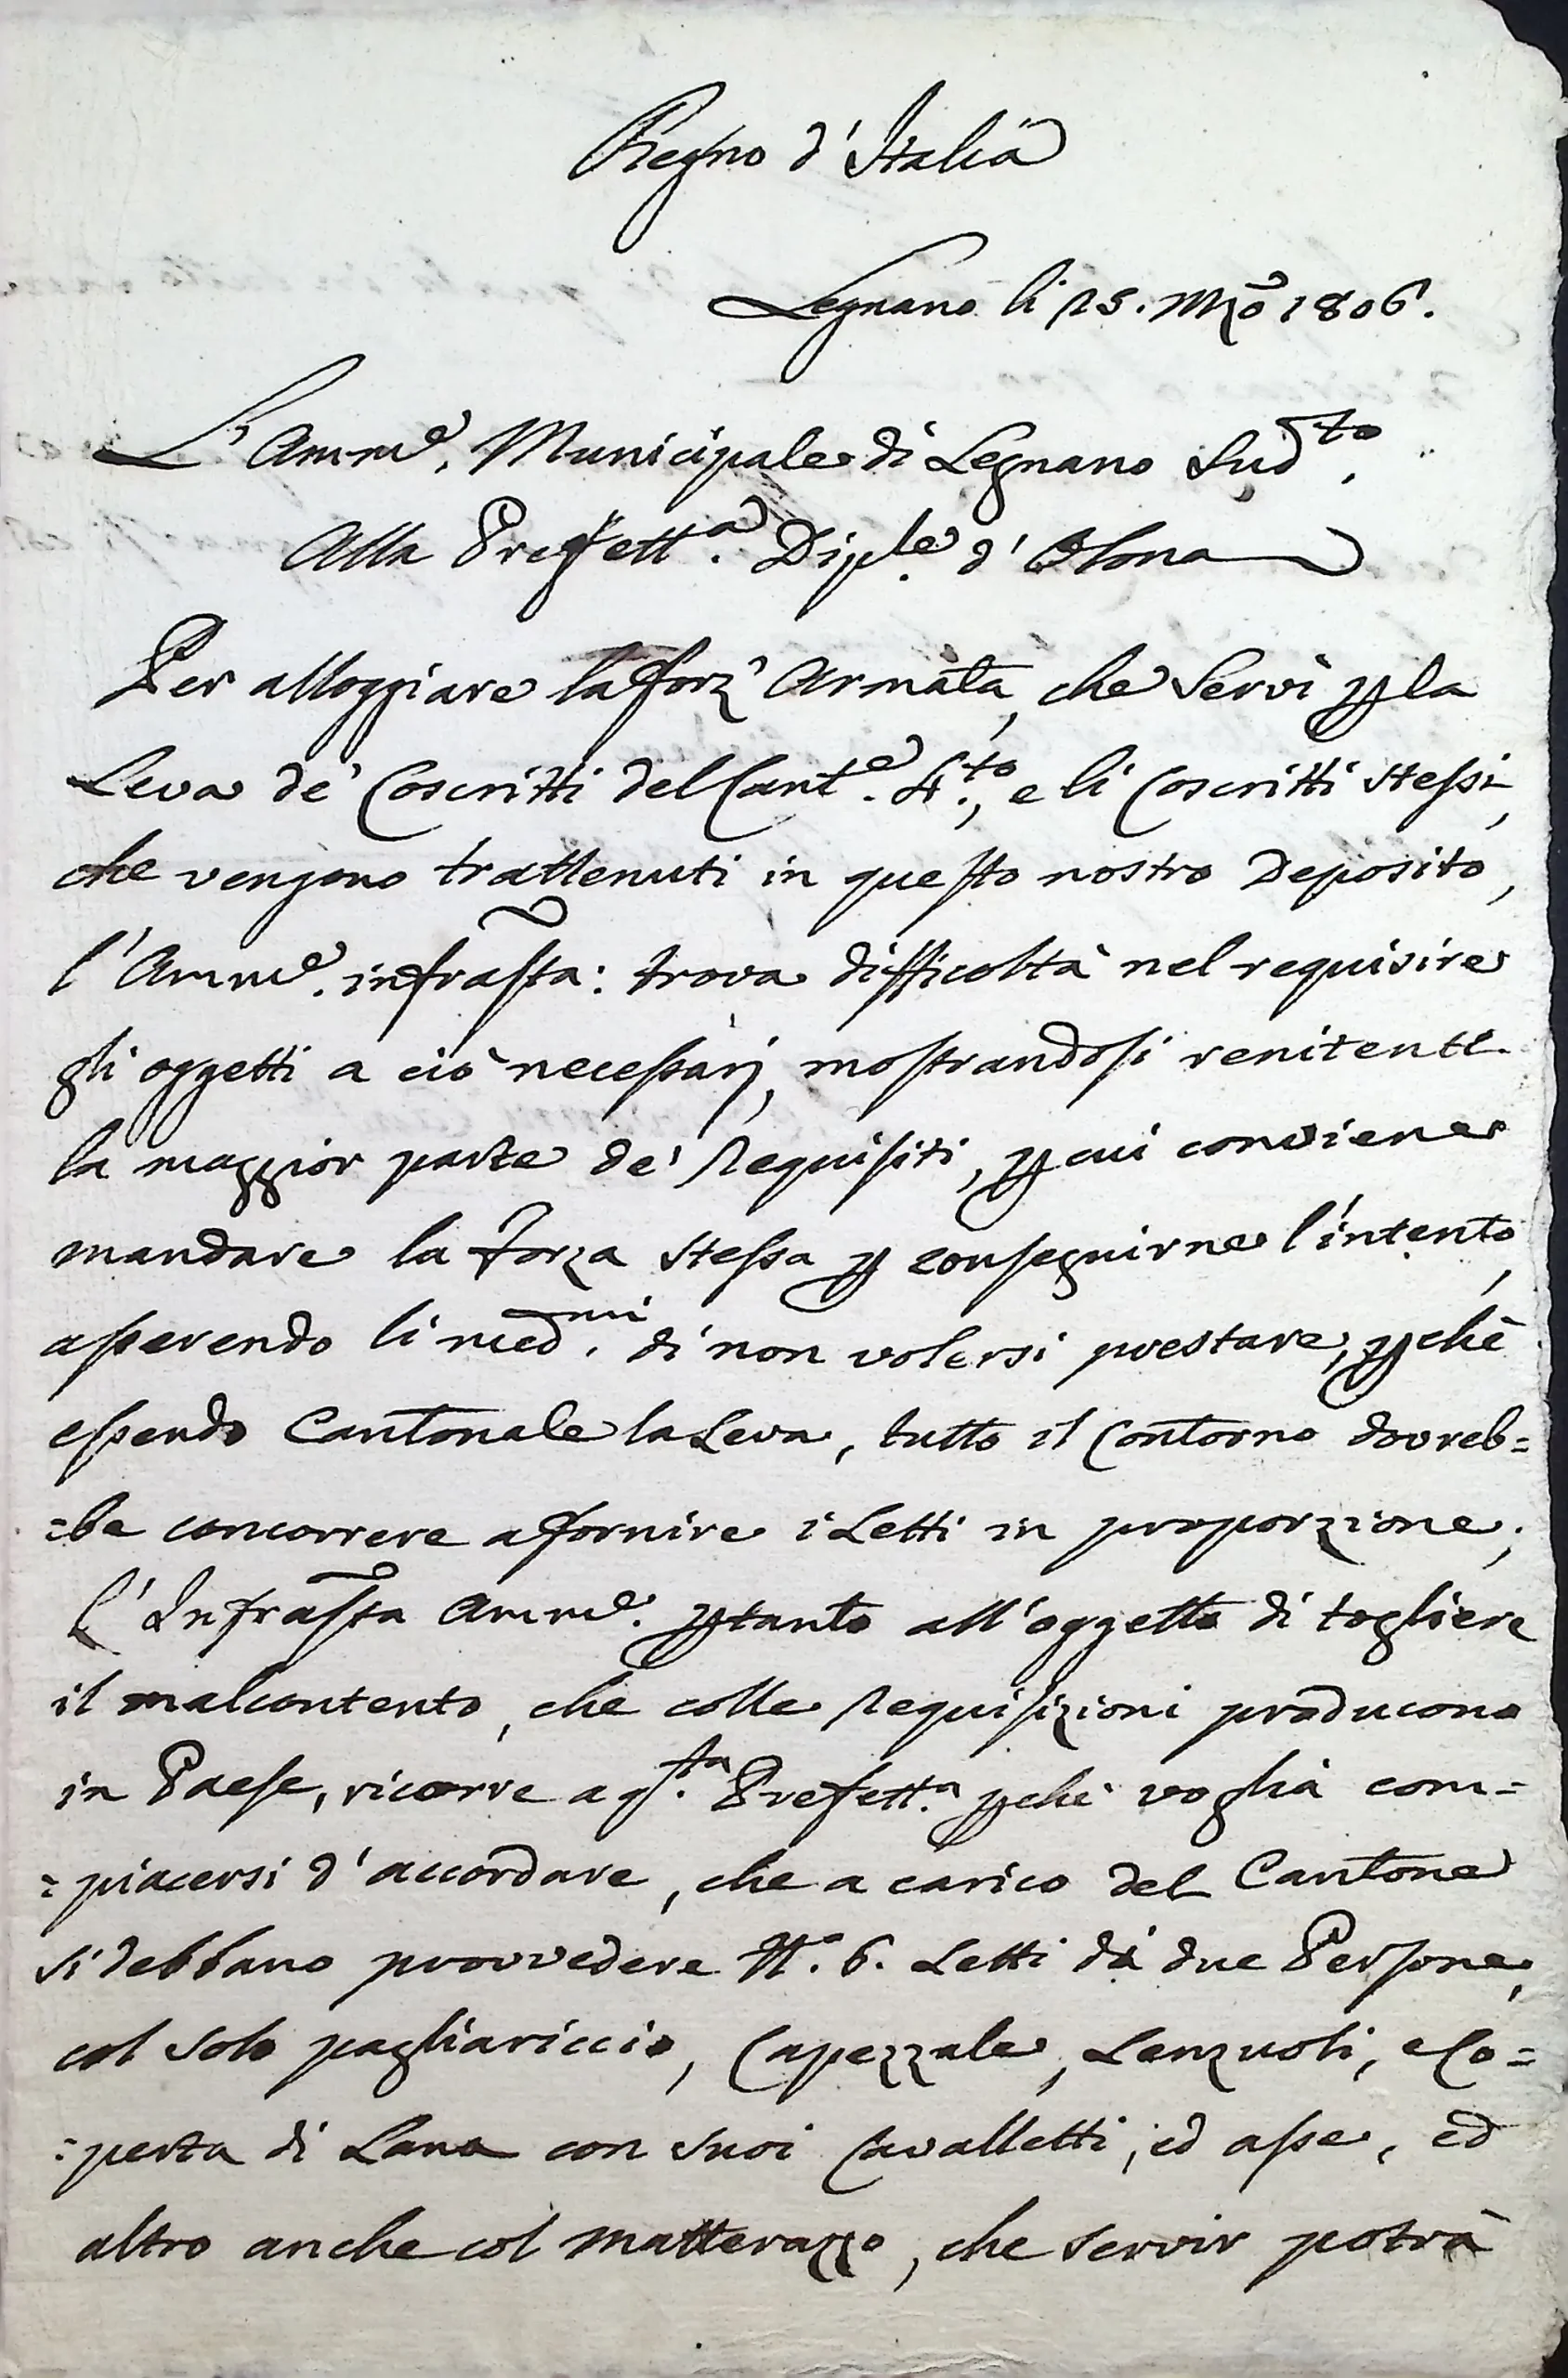 Regno d'Italia
Legnano li 15. Mzo 1806.
L'Amme. Municipale di Legnano Sudto.
Alla Prefetta. Diple. d'Olona
Per alloggiare la forz' Armata, che Servì p la
Leva de' Coscritti del Cante. 4to., e li Coscritti stessi,
che vengono trattenuti in questo nostro Deposito,
l'Amme. infrastta: trova difficoltà nel requisire
gli oggetti a ciò necessarj, mostrandosi renitente
la maggior parte de' Requisiti, p cui conviene
mandare la forza stessa p conseguirne l'intento,
asserendo li medmi. di non volersi prestare, pchè
essendo Cantonale la Leva, tutto il Contorno dovreb=
=be concorrere a fornire i Letti in proporzione;
L'Infrastta Amme. ptanto all'oggetto di togliere
il malcontento, che colle Requisizioni producono
in Paese, ricorre a qta. Prefetta. pchè voglia com=
=piacersi d'accordare, che a carico del Cantone
si debbano provvedere N.° 6. Letti da due Persone,
col solo pagliariccio, Capezzale, Lenzuoli, e Co=
=perta di Lana con suoi Cavalletti, ed asse, ed
altro anche col matterazzo, che servir potrà